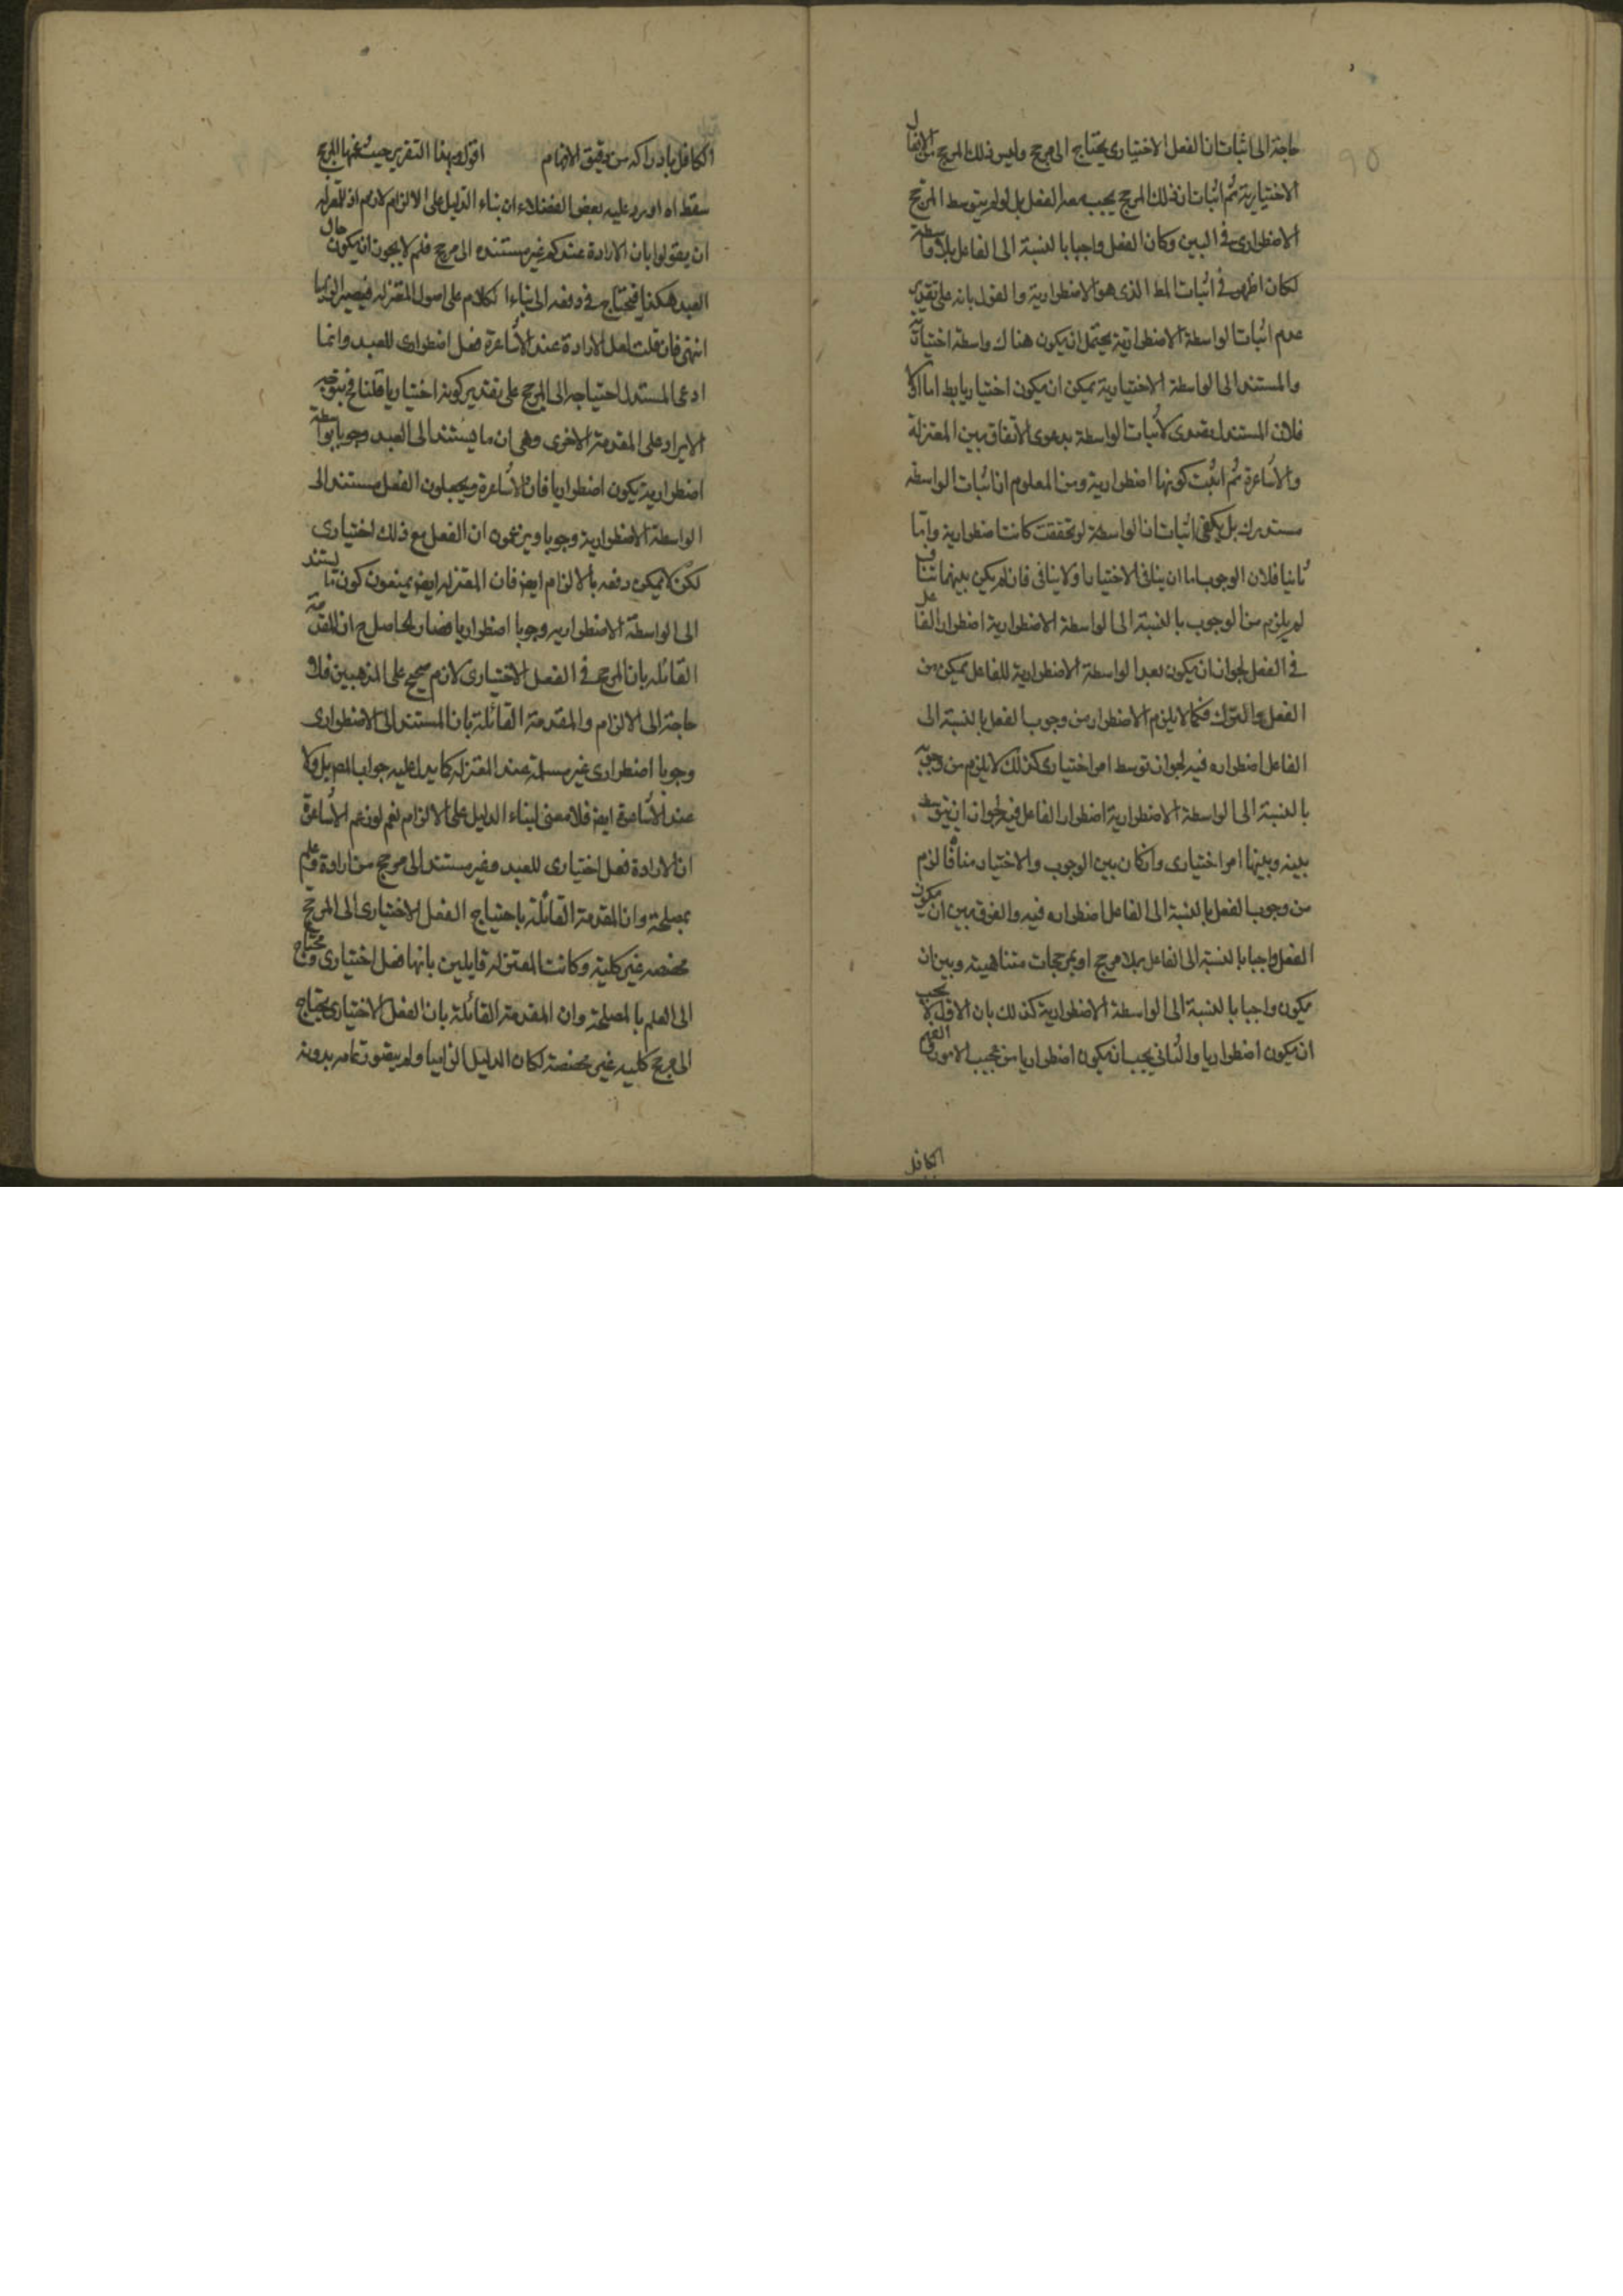 حاجة الى اثبات ان الفعل الاختيارى يحتاج الى مرجح وليس ذلك المرجح من الافعال
الاختيارية ثم اثبات ان ذلك المرجح يجب معه الفعل بل لو لم يتوسط المرجح
الاضطرارى فى البين وكان الفعل واجبا بالنسبة الى الفاعل بلا واسطة
لكان اظهر فى اثبات المط الذى هو الاضطرارية والقول بانه على تقدير
عدم اثبات الواسطة الاضطرارية يحتمل ان يكون هناك واسطة اختيارية
والمستند الى الواسطة الاختيارية يمكن ان يكون اختياريا بط اما اولا
فلان المستدل تصدى لاثبات الواسطة بدعوى الاتفاق بين المعتزلة
والاشاعرة ثم اثبت كونها اضطرارية ومن المعلوم ان اثبات الواسطة
مستدرك بل يكفى اثبات ان الواسطة لو تحققت كانت اضطرارية واما
ثانيا فلان الوجوب اما ان ينافى الاختيار او لا ينافى فان لم يكن بينهما تناف
لم يلزم من الوجوب بالنسبة الى الواسطة الاضطرارية اضطرار الفاعل
فى الفعل لجواز ان يكون بعد الواسطة الاضطرارية للفاعل تمكن من
الفعل والترك فكما لا يلزم الاضطرار من وجوب الفعل بالنسبة الى
الفاعل اضطراره فيه لجواز توسط امر اختيارى كذلك لا يلزم من وجوبه
بالنسبة الى الواسطة الاضطرارية اضطرار الفاعل فيه لجواز ان يتوسط
بينه وبينها امر اختيارى وان كان بين الوجوب والاختيار منافاة لزم
من وجوب الفعل بالنسبة الى الفاعل اضطراره فيه والفرق بين ان يكون
الفعل واجبا بالنسبة الى الفاعل بلا مرجح او بمرجحات متناهية وبين ان
يكون واجبا بالنسبة الى الواسطة الاضطرارية كذلك بان الاول لا يجب
ان يكون اضطراريا والثانى يجب ان يكون اضطراريا من عجيب الامور والفهم
الكافل
الكافل بادراكه من دقيق الافهام اقول وبهذا التقرير حيث المرجح
سقط ما اورد عليه بعض الفضلاء ان بناء الدليل على الالزام لازم اذ للمعتزلة
ان يقولوا بان الارادة عندكم غير مستنده الى مرجح فلم لا يجوز ان يكون حال
العبد هكذا فيحتاج فى دفعه الى بناء الكلام على اصول المعتزله فيصير الزاميا
انتهى فان قلت لعل الارادة عند الاشاعرة فعل اضطرارى للعبد وانما
ادعى المستدل احتياجه الى المرجح على تقدير كونه اختياريا قلنا فح يتوجه
الايراد على المقدمة الاخرى وهى ان ما يستند الى العبد وجوبا بواسطة
اضطرارية يكون اضطراريا فان الاشاعرة يجعلون الفعل مستندا الى
الواسطة الاضطرارية وجوبا ويزعمون ان الفعل مع ذلك اختيارى
لكن لا يمكن دفعه بالالزام ايض فان المعتزله ايض يمنعون كون ما يستند
الى الواسطة الاضطراريه وجوبا اضطراريا فصار الحاصل ح ان المقدمة
القائله بان المرجح فى الفعل الاختيارى لازم صحيح على المذهبين فلا
حاجة الى الالزام والمقدمة القائلة بان المستند الى الاضطرارى
وجوبا اضطرارى غير مسلمة عند المعتزله كما يدل عليه جواب المص بل ولا
عند الاشاعرة ايض فلا معنى لبناء الدليل على الالزام نعم لو زعم الاشاعرة
ان الارادة فعل اختيارى للعبد وغير مستند الى مرجح من ارادة وعلم
بمصلحة وان المقدمة القائلة باحتياج الفعل الاختيارى الى المرجح
مخصصه غير كلية وكانت المعتزله قايلين بانها فعل اختيارى ومحتاج
الى العلم بالمصلحة وان المقدمة القائلة بان الفعل الاختيارى يحتاج
الى مرجح كليه غير مخصصة لكان الدليل الزاميا ولم يتصور تمامه بدونه